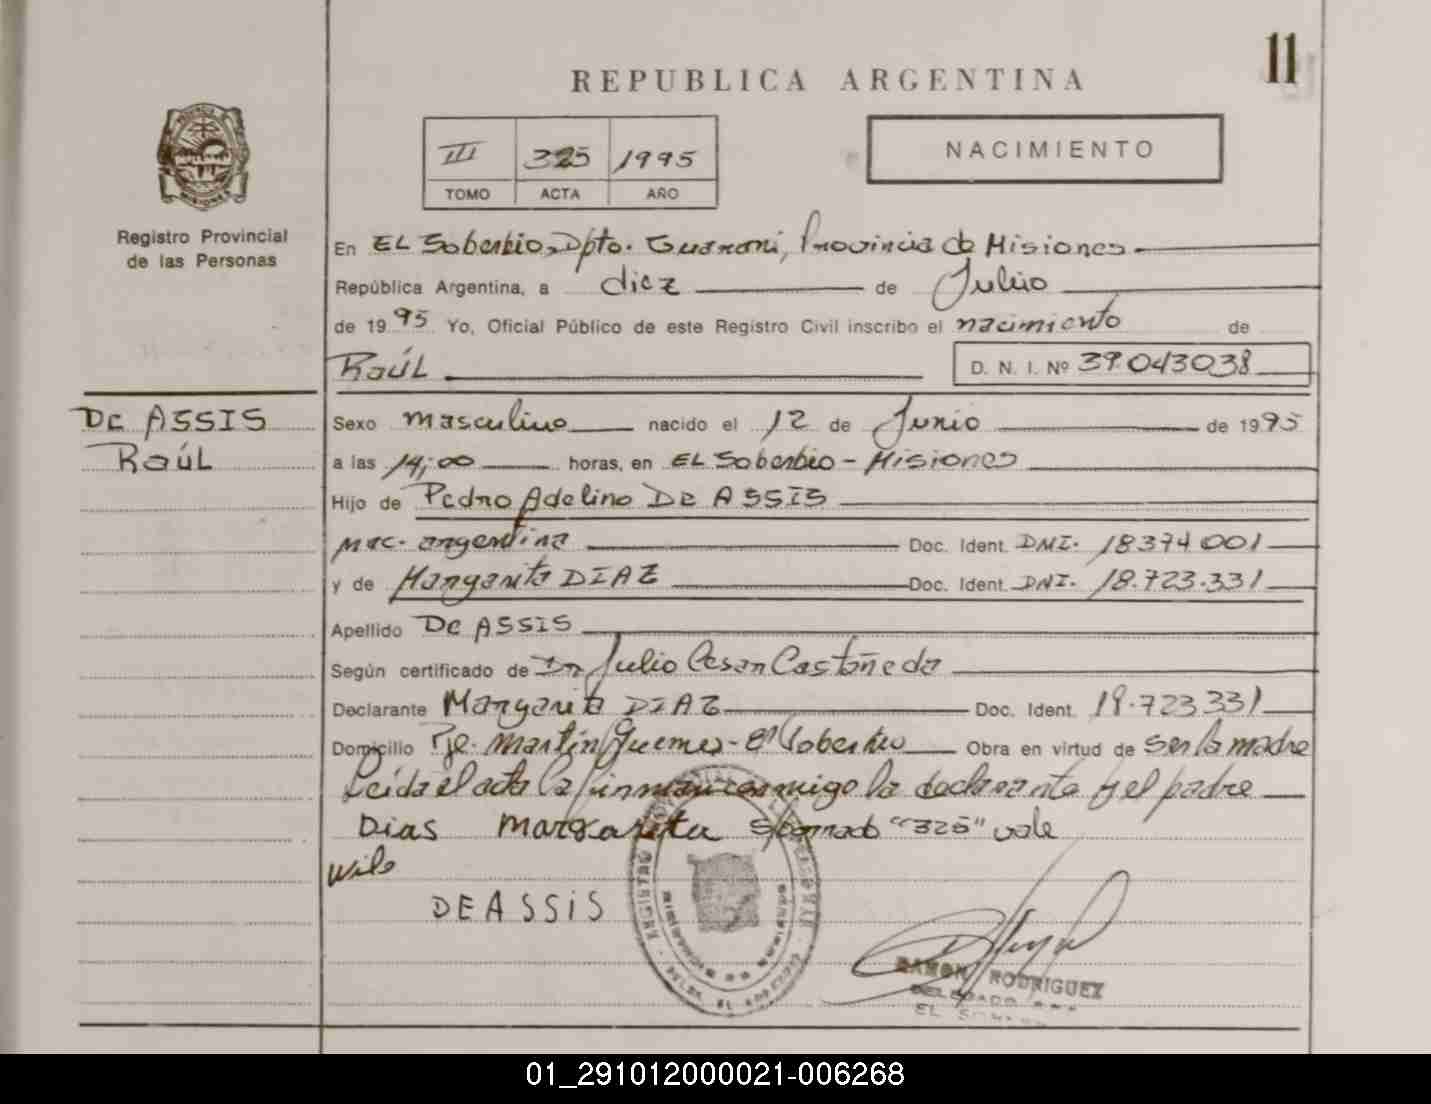 11
REPUBLICA ARGENTINA
III 325 1995
TOMO ACTA AÑO
NACIMIENTO
Registro Provincial
de las Personas
En EL Soberbio, Dpto. Guaraní, Provincia de Misiones
República Argentina, a diez de Julio
de 1995 Yo, Oficial Público de este Registro Civil inscribo el nacimiento de
RaúL D. N. I. Nº 39.043038
De ASSIS
RaúL
Sexo masculino nacido el 12 de Junio de 1995
a las 14,00 horas, en EL Soberbio - Misiones
Hijo de Pedro Adelino De ASSIS
nac. argentina Doc. Ident. DNI. 18374001
y de Margarita DIAZ Doc. Ident. DNI. 18.723.331
Apellido De ASSIS
Según certificado de Dr Julio Cesar Castañeda
Declarante Margarita DIAZ Doc. Ident. 18.723331
Domicilio Pje. Martín Guemes - El Soberbio Obra en virtud de Ser la madre
Leída el acta la firman conmigo la declarante y el padre
Dias Margarita S/borrado "325" vale
DEASSIS
RAMON RODRIGUEZ
DELEGADO
EL
01_291012000021-006268